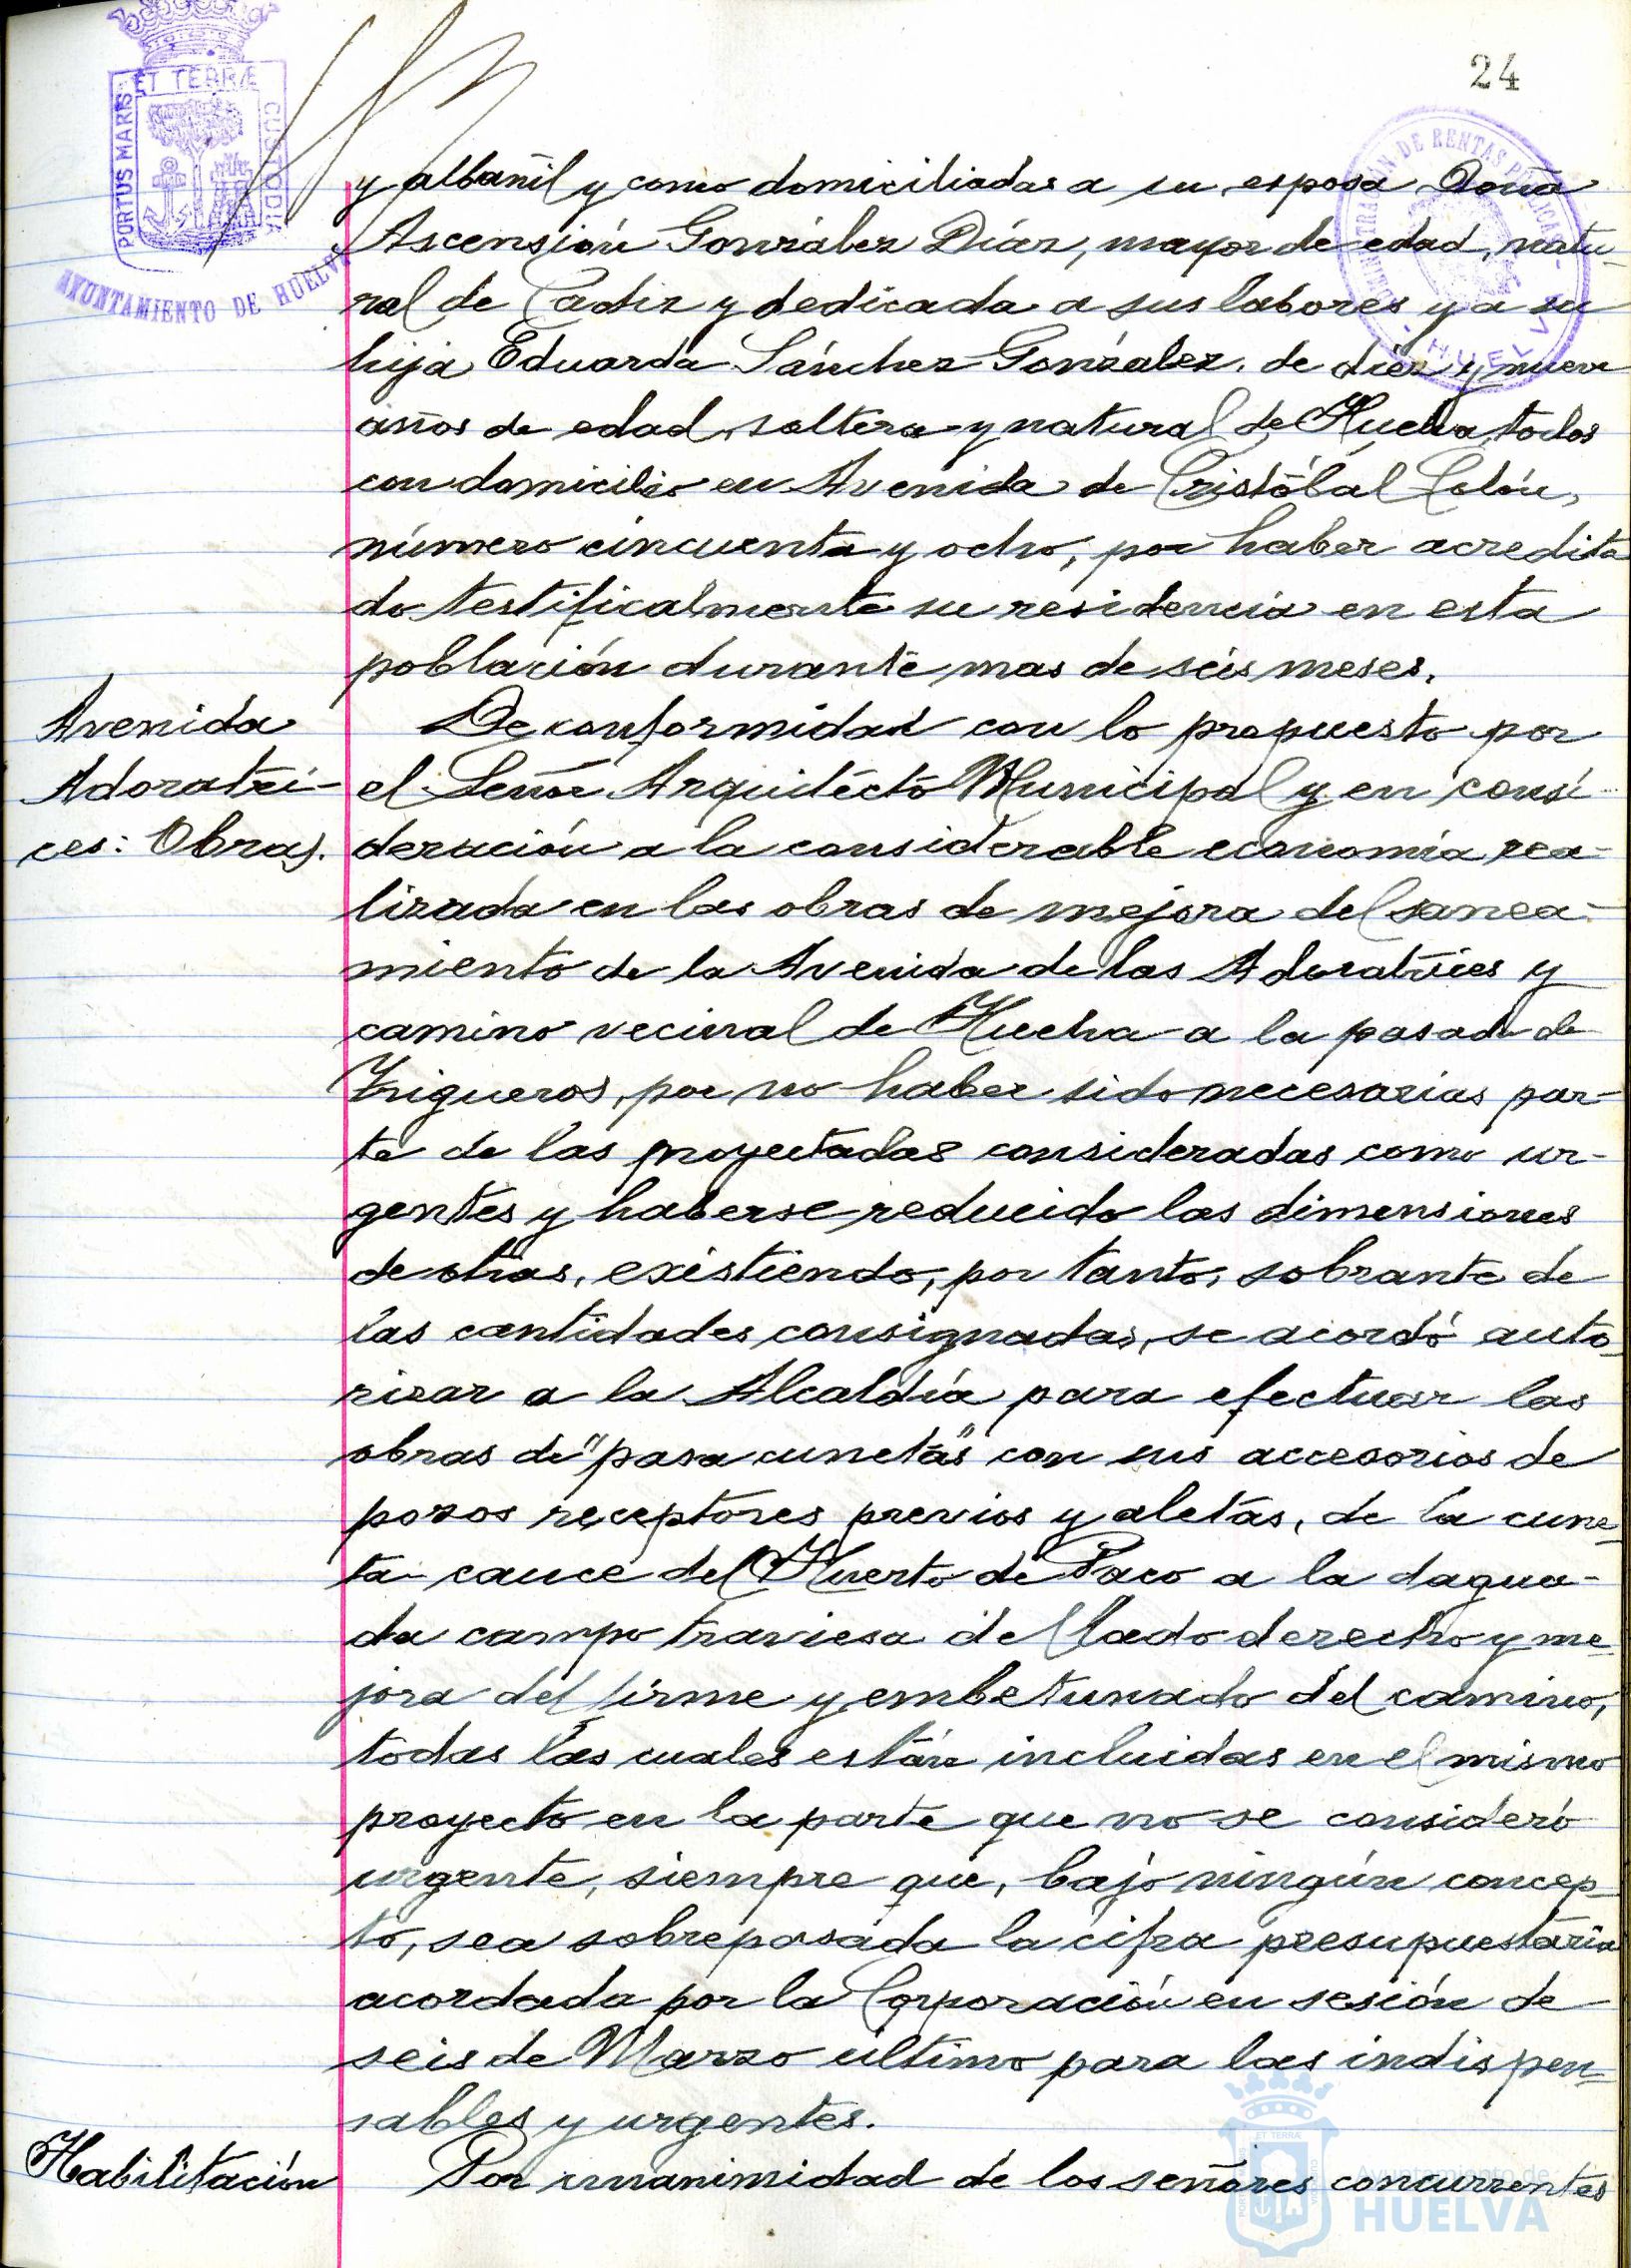 24
PORTUS MARIS ET TERRÆ CUSTODIA
AYUNTAMIENTO DE HUELVA
ADMINISTRACIÓN DE RENTAS PÚBLICAS
- HUELVA -
y albañil y como domiciliadas a su esposa Doña
Ascensión González Díaz, mayor de edad, natu-
ral de Cadiz y dedicada a sus labores y a su
hija Eduarda Sánchez González, de diez y nueve
años de edad, soltera y natural de Huelva, todos
con domicilio en Avenida de Cristóbal Colón,
número cincuenta y ocho, por haber acredita
do testificalmente su residencia en esta
población durante mas de seis meses.
Avenida
Adoratri-
ces: Obras.
De conformidad con lo propuesto por
el Señor Arquitecto Municipal y en consi-
deración a la considerable economía rea-
lizada en las obras de mejora del sanea-
miento de la Avenida de las Adoratrices y
camino vecinal de Huelva a la pasada de
Trigueros, por no haber sido necesarias par-
te de las proyectadas consideradas como ur-
gentes y haberse reducido las dimensiones
de otras, existiendo, por tanto, sobrante de
las cantidades consignadas, se acordó auto
rizar a la Alcaldía para efectuar las
obras de "pasa cunetas" con sus accesorios de
pozos receptores previos y aletas, de la cune-
ta cauce del Huerto de Paco a la dagua-
da campo traviesa del lado derecho y me-
jora del firme y embetunado del camino,
todas las cuales están incluidas en el mismo
proyecto en la parte que no se consideró
urgente, siempre que, bajo ningún concep-
to, sea sobrepasada la cifra presupuestaria
acordada por la Corporación en sesión de
seis de Marzo ultimo para las indispen-
sables y urgentes.
Habilitación
Por unanimidad de los señores concurrentes
Ayuntamiento de
HUELVA